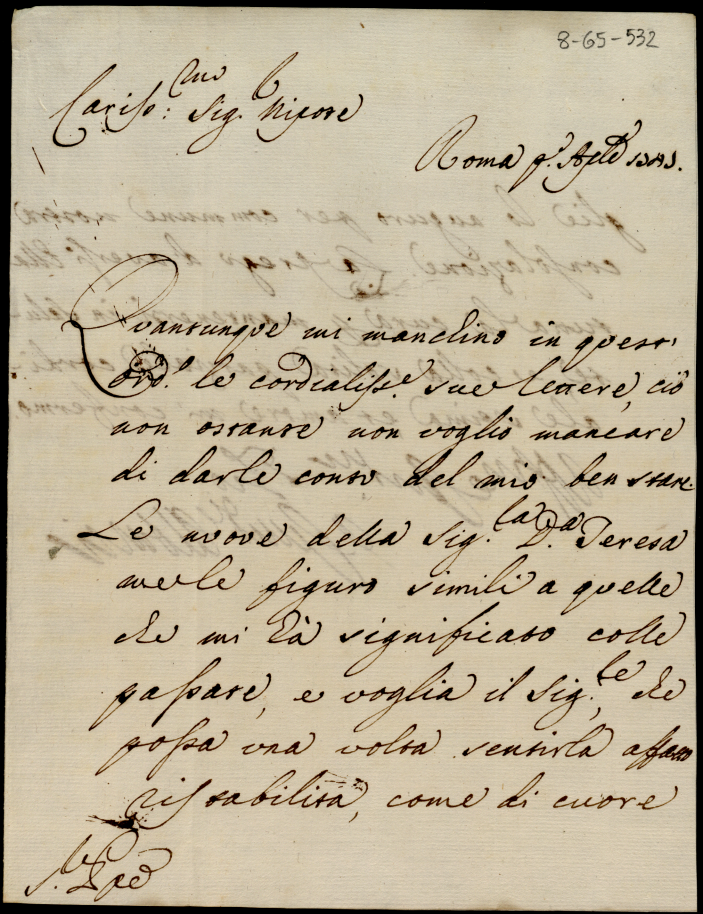 8-65-532
Cariss:mo Sig.r Nipote
Roma p.o Ag.to
Quantunque mi manchino in quest'
ord.o le cordialiss.e sue lettere, ciò
non ostante non voglio mancare
di darle conto del mio ben stare.
Le nuove della Sig.la D.a Teresa
me le figuro simili a quelle
che mi hà significato colle
passate, e voglia il Sig.re, che
possa una volta sentirla affatto
ristabilita, come di cuore